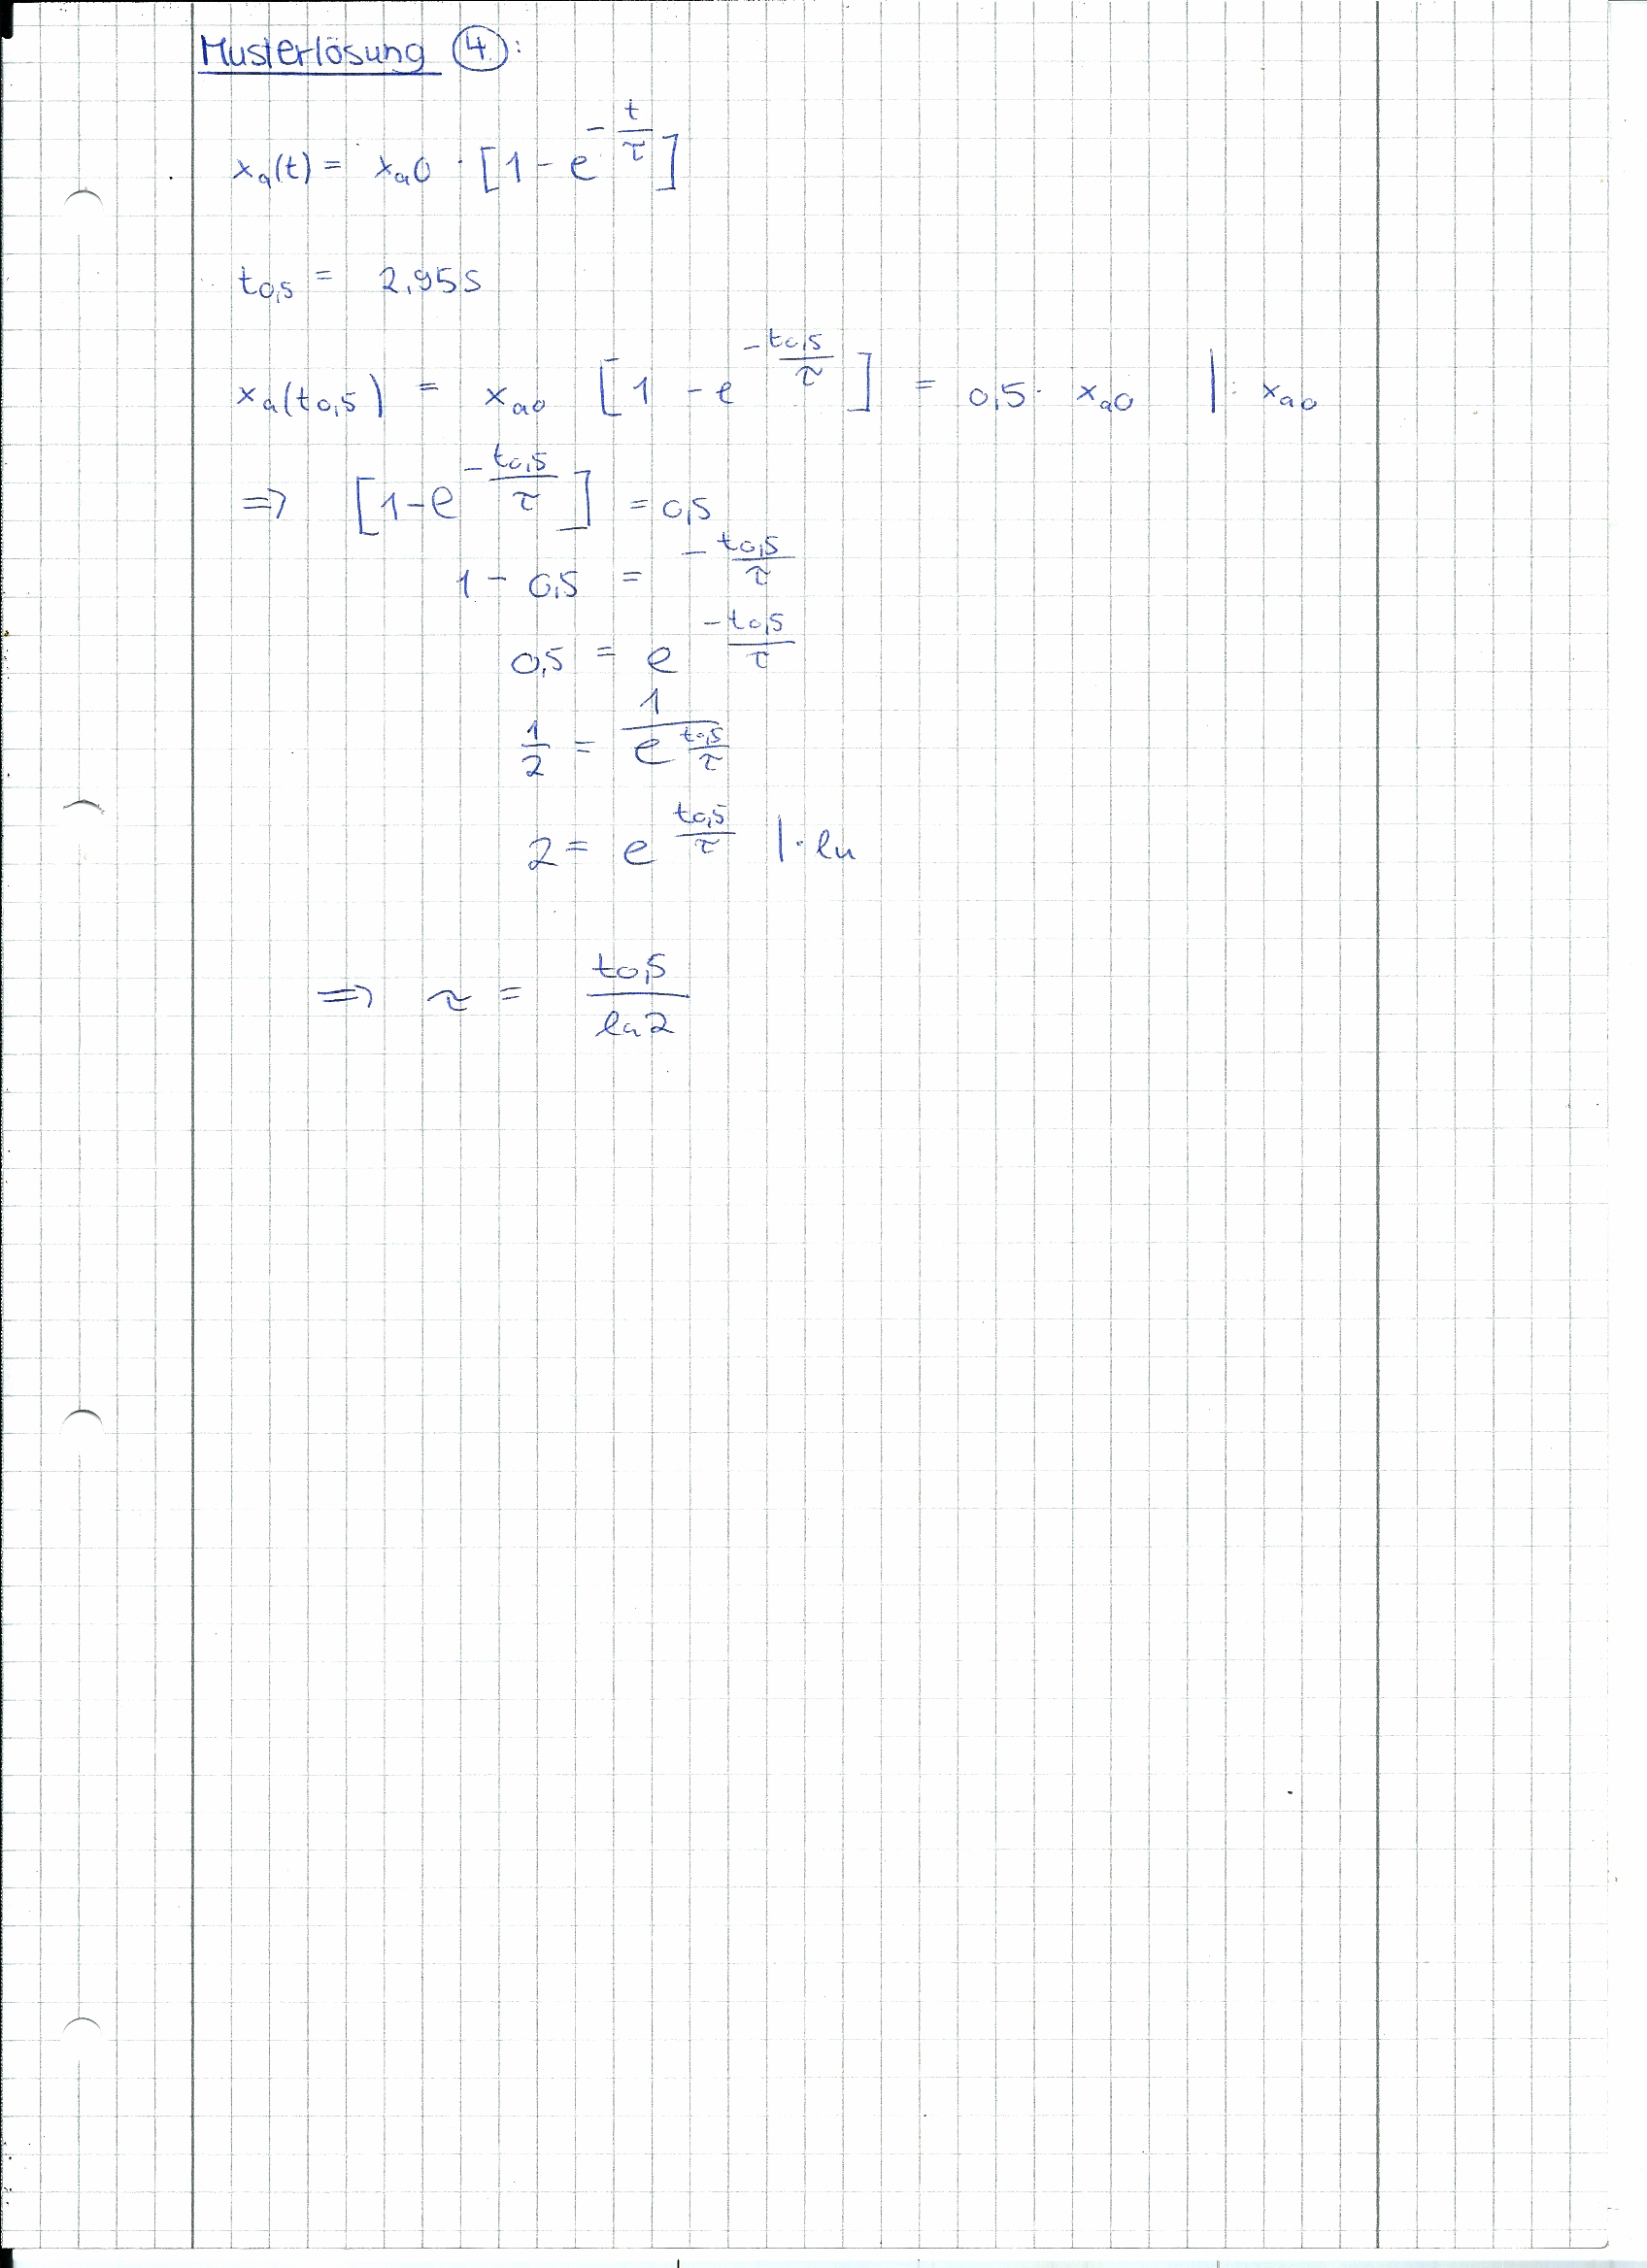 Musterlösung ④:
xa(t) = xa0 · [1 - e^(-t/τ)]
t0,5 = 2,95s
xa(t0,5) = xa0 [1 - e^(-t0,5/τ)] = 0,5 · xa0 | : xa0
=> [1-e^(-t0,5/τ)] = 0,5
1 - 0,5 = -t0,5/τ
0,5 = e^(-t0,5/τ)
1/2 = 1/e^(t0,5/τ)
2 = e^(t0,5/τ) | · ln
=> τ = t0,5/ln2